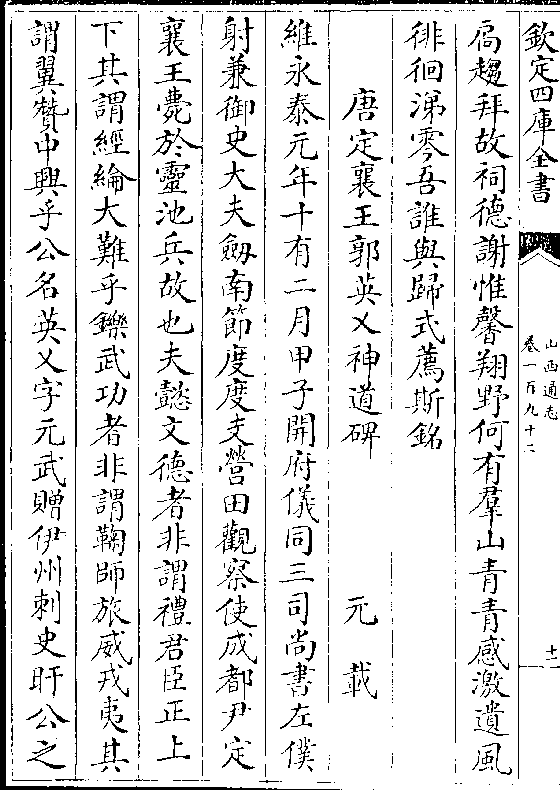 欽定四庫全書
山西通志
卷一百九十二
十一
扄趨拜故祠德謝惟馨翔野何有羣山青青感激遺風
徘徊涕零吾誰與歸式薦斯銘
唐定襄王郭英乂神道碑 元載
維永泰元年十有二月甲子開府儀同三司尚書左僕
射兼御史大夫劔南節度度支營田觀察使成都尹定
襄王薨於靈池兵故也夫懿文德者非謂禮君臣正上
下其謂經綸大難乎鑠武功者非謂鞠師旅威戎夷其
謂翼贊中興乎公名英乂字元武贈伊州刺史盱公之